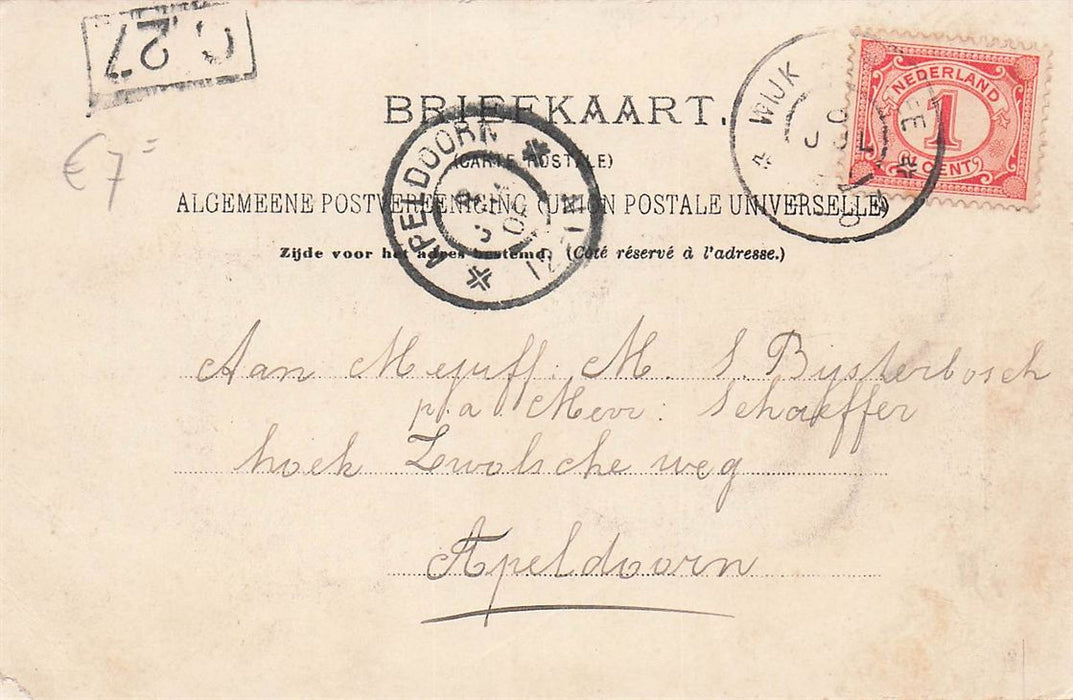 C 27
€ 7 =
BRIEFKAART.
(CARTE POSTALE)
ALGEMEENE POSTVEREENIGING (UNION POSTALE UNIVERSELLE)
Zijde voor het adres bestemd. (Côté réservé à l'adresse.)
APELDOORN
12-1N
WIJK
NEDERLAND
1
CENT
Aan Mejuff: M. S. Bijsterbosch
p/a Mevr: Schaeffer
hoek Zwolsche weg
Apeldoorn